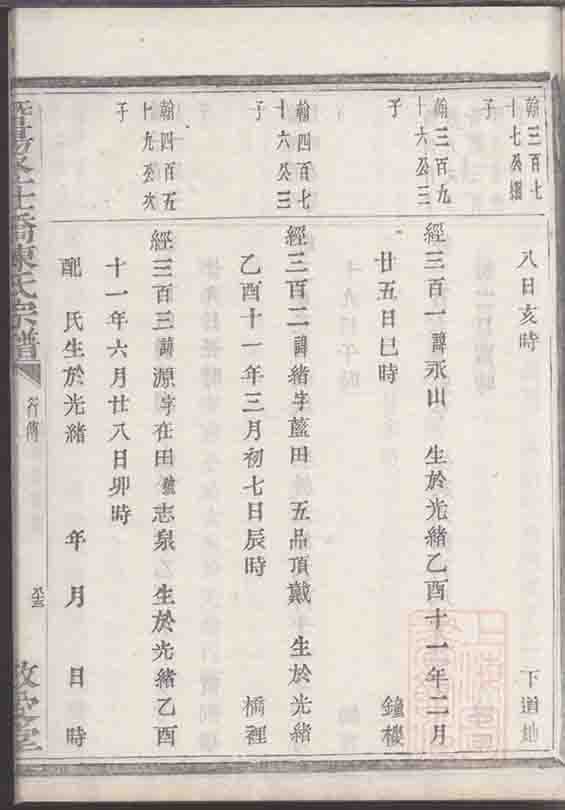 翰三百七
十七公
子
八日亥時 下道地
翰三百九
十六公三
子
經三百一諱永山 生於光緒乙酉十一年二月
廿五日巳時 鐘樓
翰四百七
十六公三
子
經三百二諱緒字藍田 五品頂戴 生於光緒
乙酉十一年三月初七日辰時 橋裡
翰四百五
十九公次
子
經三百三諱源字在田號志泉 生於光緒乙酉
十一年六月廿八日卯時
配 氏生於光緒 年 月 日 時
橋陳氏宗譜
行傳